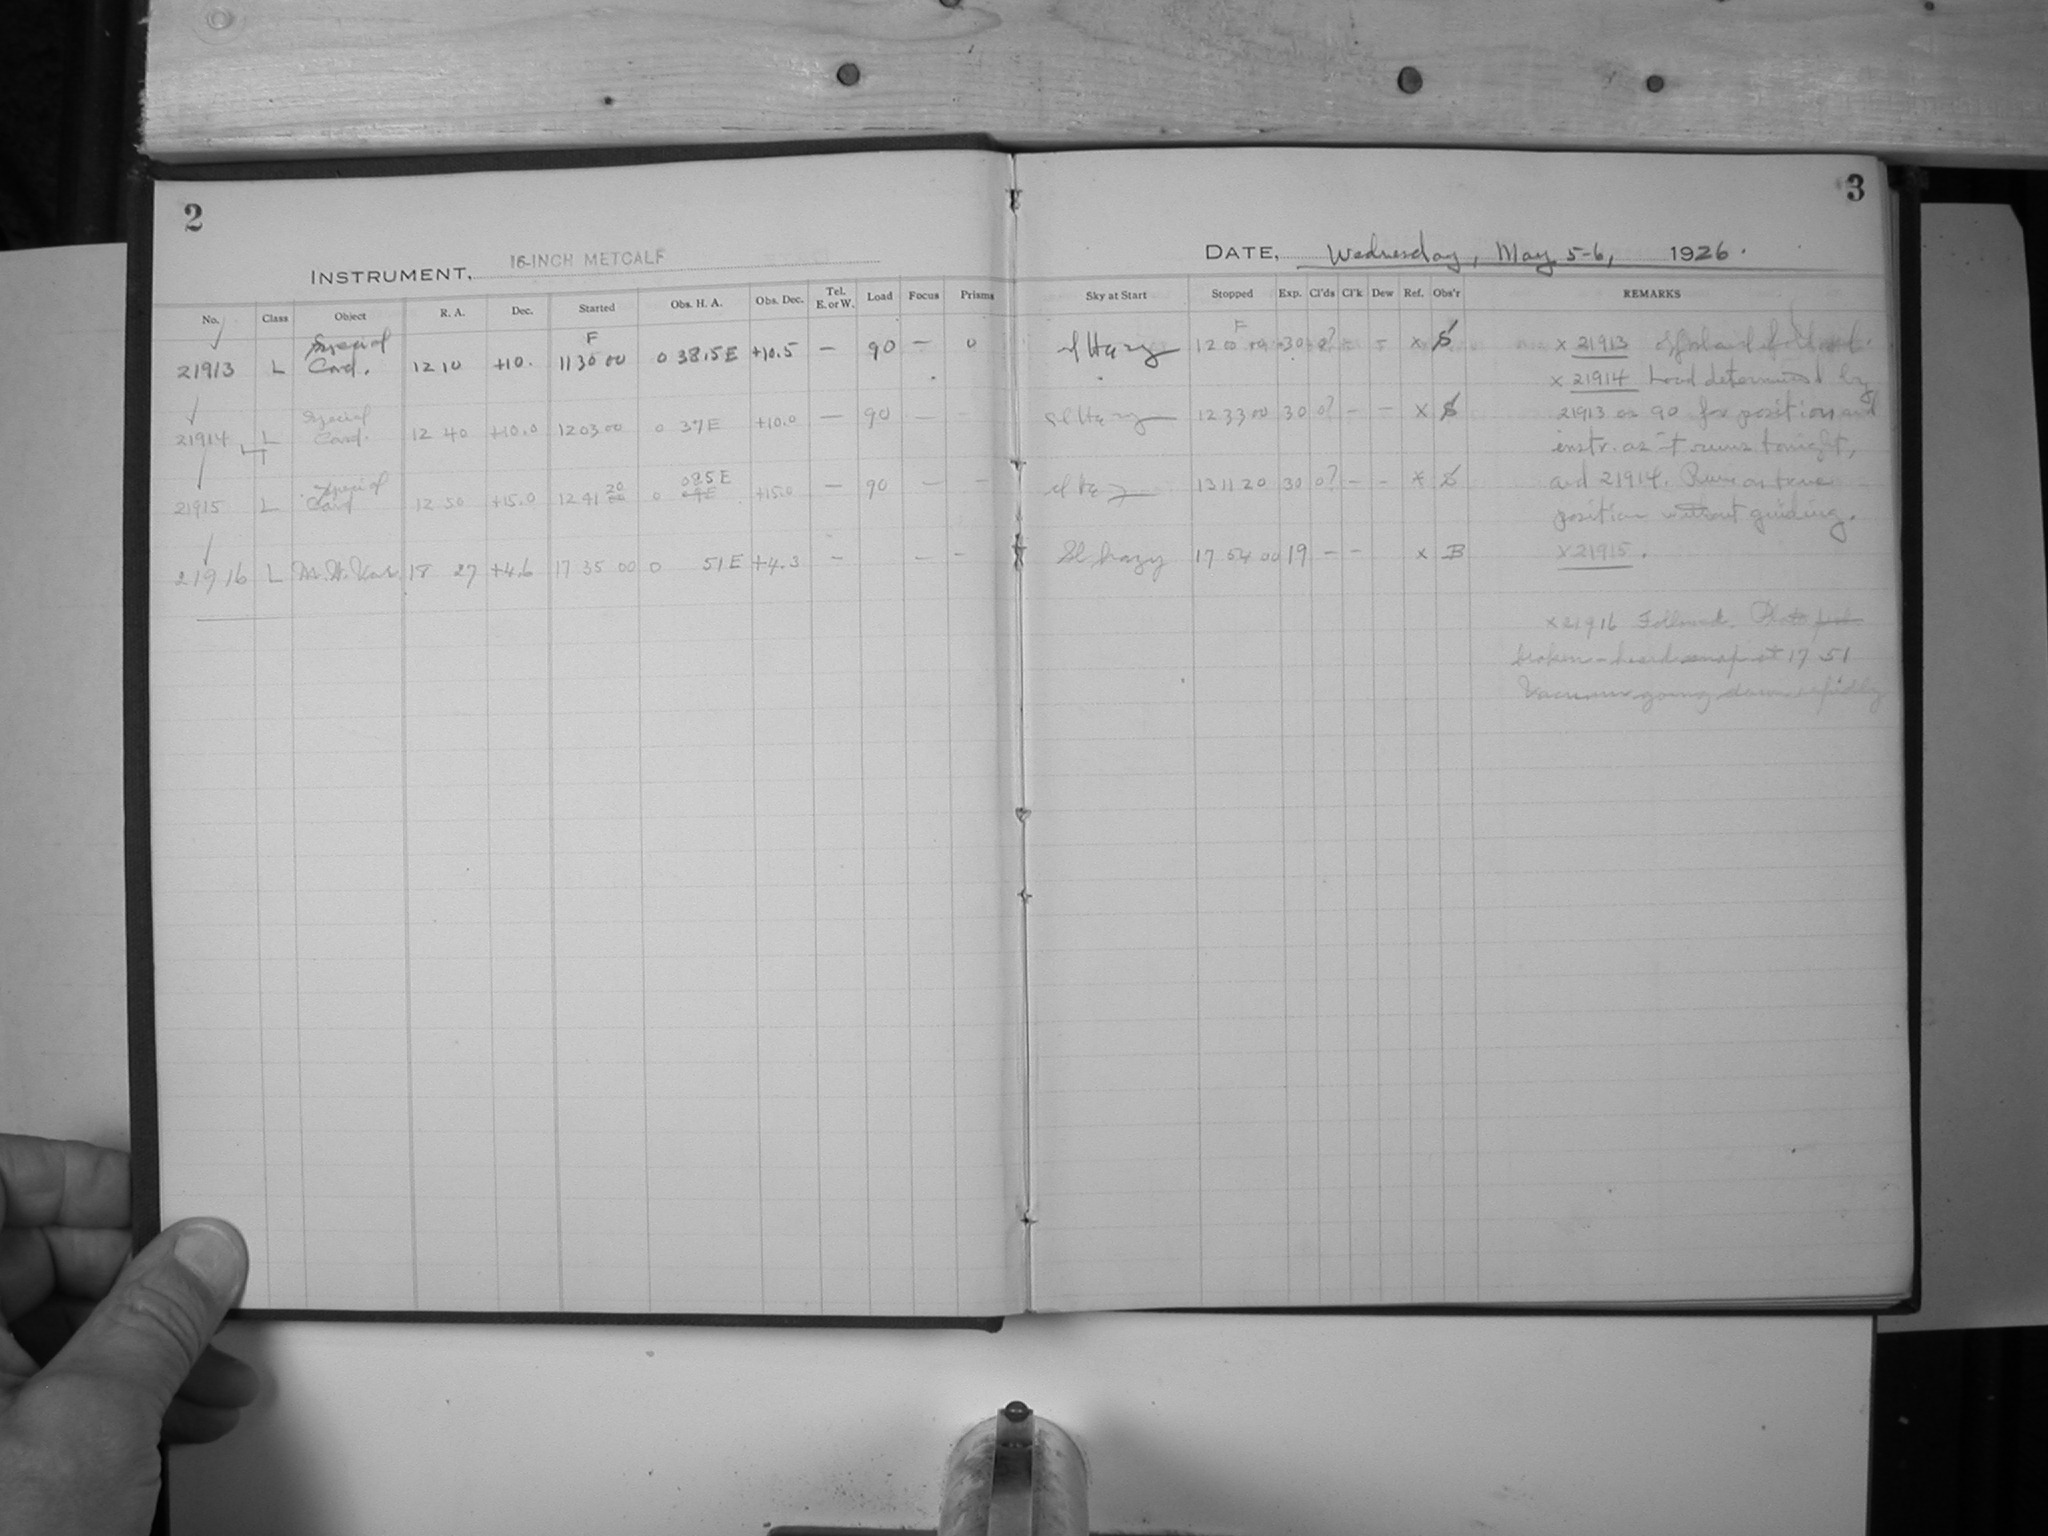 2
INSTRUMENT, 16-INCH METCALF
No. Class Object R. A. Dec. Started Obs. H. A. Obs. Dec. Tel. E. or W. Load Focus Prisms
Special F
21913 L Card. 12 10 +10. 11 30 00 0 38.5 E +10.5 — 90 — 0
Special
21914 L Card. 12 40 +10.0 12 03 00 0 37 E +10.0 — 90 —
Special 20 08.5 E
21915 L Card 12 50 +15.0 12 41 00 0 9E +15.0 — 90 — —
21916 L M. H. Var. 18 27 +4.6 17 35 00 0 51 E +4.3 — — —
3
DATE, Wednesday, May 5-6, 1926.
Sky at Start Stopped Exp. Cl'ds Cl'k Dew Ref. Obs'r REMARKS
F
sl Hazy 12 00 00 30 0? – – x S x 21913 followed.
x 21914 Load determined by
sl Hazy 12 33 00 30 0? – – x S 21913 as 90 for position and
instr. as it runs tonight,
sl Hazy 13 11 20 30 0? – – x S and 21914. Runs
position without guiding.
Sl hazy 17 54 00 19 – – x B x 21915.
x 21916 Followed. Plate
broken – heard snap at 17 51
Vacuum going down rapidly